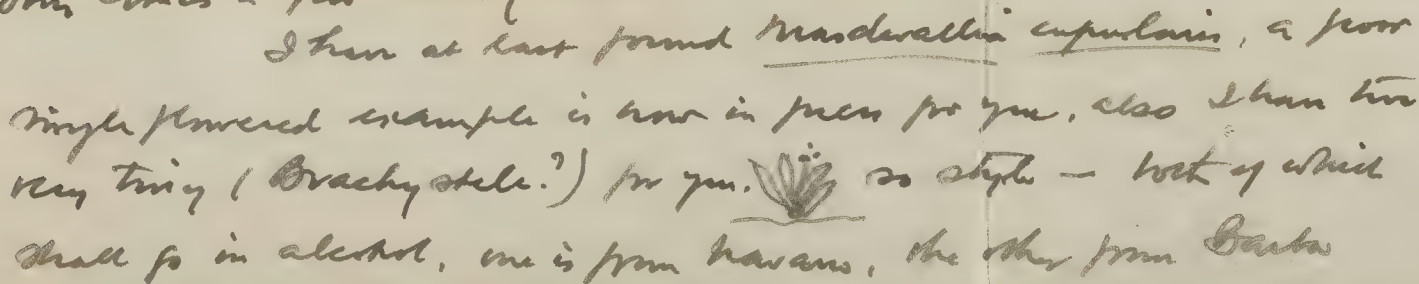 I have at last found Masdevallia cupularis, a poor
single flowered example is now in press for you, also I have two
very tiny (Brachystele?) for you. so style — both of which
shall go in alcohol, one is from Navarro, the other from Barba